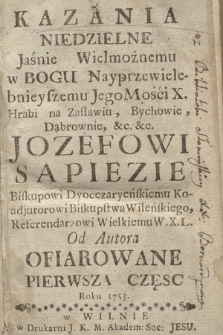 KAZANIA
NIEDZIELNE
Jaśnie Wielmożnemu
w BOGU Nayprzewiele-
bnieyszemu JegoMości X.
Hrabi na Zasławiu, Bychowie,
Dąbrownie, &c. &c.
JOZEFOWI
SAPIEZIE
Biskupowi Dyocezaryeńskiemu Ko-
adjutorowi Biskupstwa Wileńskiego,
Referendarzowi Wielkiemu W.X.L.
Od Autora
OFIAROWANE
PIERWSZA CZĘSC
Roku 1753.
w WILNIE
w Drukarni J. K. M. Akadem: Soc: JESU.